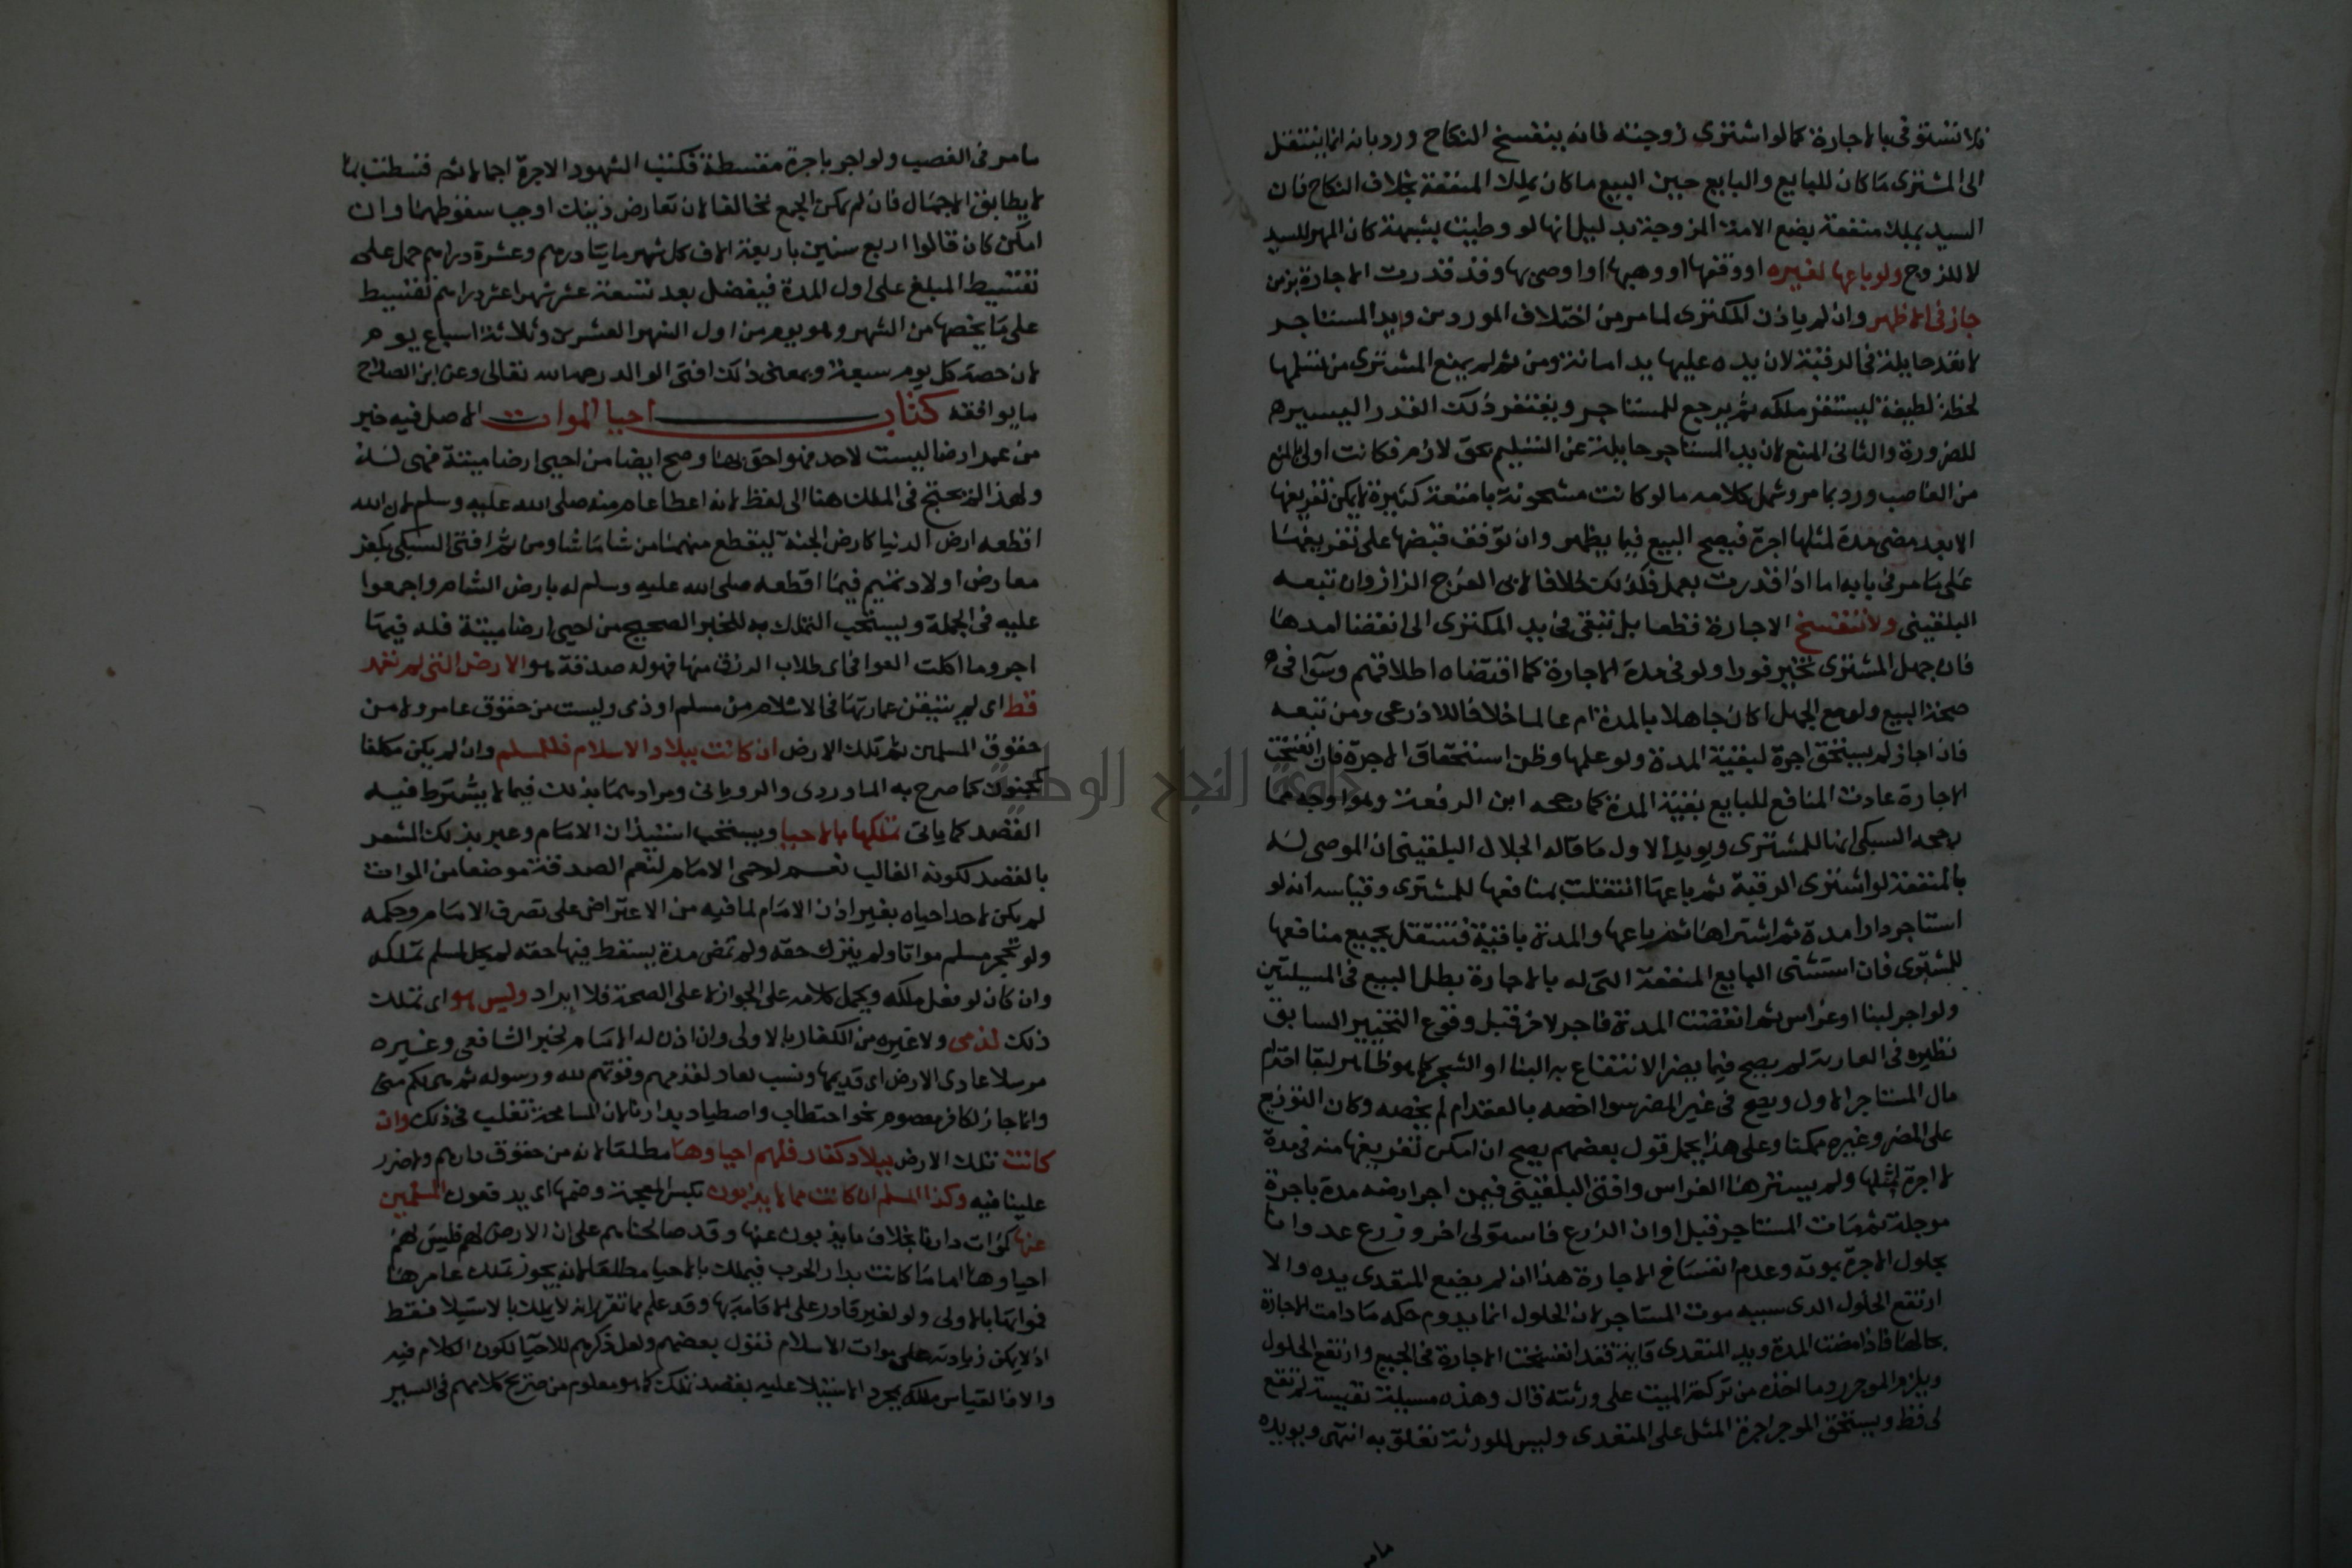 فلا تستوفى بالاجارة كما لو اشترى زوجته فانه ينفسخ النكاح ورد بانه انما ينتقل
الى المشترى ما كان للبايع والبايع حين البيع ما كان يملك المنفعة بخلاف النكاح فان
السيد يملك منفعة بضع الامة المزوجة بدليل انها لو وطيت بشبهة كان المهر للسيد
لا للزوج ولو باعها لغيره او وقفها او وهبها او اوصى بها وقد قدرت الاجارة بزمن
جاز فى الاظهر وان لم ياذن المكترى لما مر من اختلاف الموردين ويد المستاجر
لا تعد حايلة فى الرقبة لان يده عليها يد امانة ومن ثم لم يمنع المشترى من تسلمها
لحظة لطيفة ليستقر ملكه ثم يرجع للمستاجر ويغتفر ذلك القدر اليسير
للضرورة والثانى المنع لان يد المستاجر حايلة عن التسليم بحق لازم فكانت اولى بالمنع
من الغاصب ورد بما مر وشمل كلامه ما لو كانت مشحونة بامتعة كثيرة لا يمكن تفريغها
الا بعد مضى مدة لمثلها اجرة فيصح البيع فيما يظهر وان توقف قبضها على تفريغها
على ما مر فى بابه اما اذا قدرت بعمل فكذلك خلافا لابى الفرج الزاز وان تبعه
البلقينى ولا تنفسخ الاجارة قطعا بل تبقى فى يد المكترى الى انقضا امدها
فان جهل المشترى تخير فورا ولو فى مدة الاجارة كما اقتضاه اطلاقهم وسوا فى
صحة البيع ولو مع الجهل اكان جاهلا بالمدة ام عالما خلافا للاذرعى ومن تبعه
فان اجاز لم يستحق اجرة لبقية المدة ولو علمها وظن استحقاق الاجرة فان انفسخت
الاجارة عادت المنافع للبايع بقية المدة كما رجحه ابن الرفعة وهو اوجه مما
رجحه السبكى انها للمشترى ويويد الاول ما قاله الجلال البلقينى ان الموصى له
بالمنفعة لو اشترى الرقبة ثم باعها انتقلت بمنافعها للمشترى وقياسه انه لو
استاجر دارا مدة ثم اشتراها ثم باعها والمدة باقية فتنتقل بجميع منافعها
للمشترى فان استثنى البايع المنفعة التى له بالاجارة بطل البيع فى المسيلتين
ولو اجر لبنا او غراس ثم انقضت المدة فاجر لاخر قبل وقوع التخيير السابق
نظيره فى العارية لم يصح فيما يضر الانتفاع به البنا او الشجر كما هو ظاهر لبقا احترام
مال المستاجر الاول ويصح فى غير المضر سوا اخصه بالعقد ام لم يخصه وكان التوزيع
على المضر وغيره ممكنا وعلى هذا يحمل قول بعضهم يصح ان امكن تفريغها منه فى مدة
لا اجرة لمثلها ولم يستر ها الغراس وافتى البلقينى فيمن اجر ارضه مدة باجرة
موجلة ثم مات المستاجر قبل اوان الزرع فاستولى اخر وزرع عدوانا
بحلول الاجرة بموته وعدم انفساخ الاجارة هذا ان لم يضع المتعدى يده والا
ارتفع الحلول الذى سببه موت المستاجر لان الحلول انما يدوم حكمه ما دامت الاجارة
بحالها فاذا مضت المدة ويد المتعدى قايمة فقد انفسخت الاجارة فى الجميع وارتفع الحلول
ويلزم الموجر رد ما اخذه من تركة الميت على ورثته قال وهذه مسيلة نفيسة لم تقع
لى قط ويستحق الموجر اجرة المثل على المتعدى وليس للورثة تعلق به انتهى ويويده
ما مر
ما مر فى الغصب ولو اجر باجرة مقسطة فكتب الشهود الاجرة اجمالا ثم قسطت بما
لا يطابق الاجمال فان لم يمكن الجمع تحالفا لان تعارض ذينك اوجب سقوطهما وان
امكن كان قالوا اربع سنين باربعة الاف كل شهر مايتا درهم وعشرة دراهم حمل على
تقسيط المبلغ على اول المدة فيفضل بعد تسعة عشر شهرا عشر دراهم تقسيط
على ما يخصها من الشهر وهو يوم من اول الشهر العشرين وثلاثة اسباع يوم
لان حصة كل يوم سبعة وبمعنى ذلك افتى الوالد رحمه الله تعالى وعن ابن الصلاح
ما يوافقه كتاب احيا الموات الاصل فيه خبر
من عمر ارضا ليست لاحد فهو احق بها وصح ايضا من احيى ارضا ميتة فهى له
ولهذا لم يحتج فى الملك هنا الى لفظ لانه اعطا عام منه صلى الله عليه وسلم لان الله
اقطعه ارض الدنيا كارض الجنة ليقطع منهما من شا ما شا ومن ثم افتى السبكى بكفر
معارض اولاد تميم فيما اقطعه صلى الله عليه وسلم له بارض الشام واجمعوا
عليه فى الجملة ويستحب التملك به للخبر الصحيح من احيى ارضا ميتة فله فيها
اجر وما اكلت العوافى اى طلاب الرزق منها فهو له صدقة هو الارض التى لم تعمر
قط اى لم تتيقن عمارتها فى الاسلام من مسلم او ذمى وليست من حقوق عامر ولا من
حقوق المسلمين ثم تلك الارض ان كانت ببلاد الاسلام فللمسلم وان لم يكن مكلفا
كمجنون كما صرح به الماوردى والرويانى ومرادهما بذلك فيما لا يشترط فيه
القصد كما ياتى تملكها بالاحيا ويستحب استيذان الامام وعبر بذلك المشعر
بالقصد لكونه الغالب نعم لو حمى الامام لنعم الصدقة موضعا من الموات
لم يكن لاحد احياه بغير اذن الامام لما فيه من الاعتراض على تصرف الامام وحكمه
ولو تحجر مسلم مواتا ولم يترك حقه ولم تمض مدة يسقط فيها حقه لم يحل لمسلم تملكه
وان كان لو فعل ملكه ويحمل كلامه على الجواز لا على الصحة فلا ايراد وليس هو اى تملك
ذلك لذمى ولا غيره من الكفار بالاولى وان اذن له الامام لخبر الشافعى وغيره
مرسلا عادى الارض اى قديمها ونسب لعاد لقدمهم وقوتهم لله ورسوله ثم هى لكم منى
وانما جاز لكافر معصوم نحو احتطاب واصطياد بدارنا لان المسامحة تغلب فى ذلك وان
كانت تلك الارض ببلاد كفار فلهم احياوها مطلقا لانه من حقوق دارهم ولا ضرر
علينا فيه وكذا المسلم ان كانت مما لا يذبون بكسر المعجمة وضمها اى يدفعون المسلمين
عنها كموات دارنا بخلاف ما يذبون عنها وقد صالحناهم على ان الارض لهم فليس لهم
احياوها اما ما كانت بدار الحرب فيملك بالاحيا مطلقا لانه يجوز تملك عامرها
فمواتها بالاولى ولو لغير قادر على الاقامة بها وقد علم مما تقرر انه لا يملك بالاستيلا فقط
اذ لا يمكن زيادته على موات الاسلام فقول بعضهم ولعل ذكرهم للاحيا لكون الكلام فيه
والا فالقياس ملكه بمجرد الاستيلا عليه بقصد تملك كما هو معلوم من صريح كلامهم فى السير
جامعة النجاح الوطنية